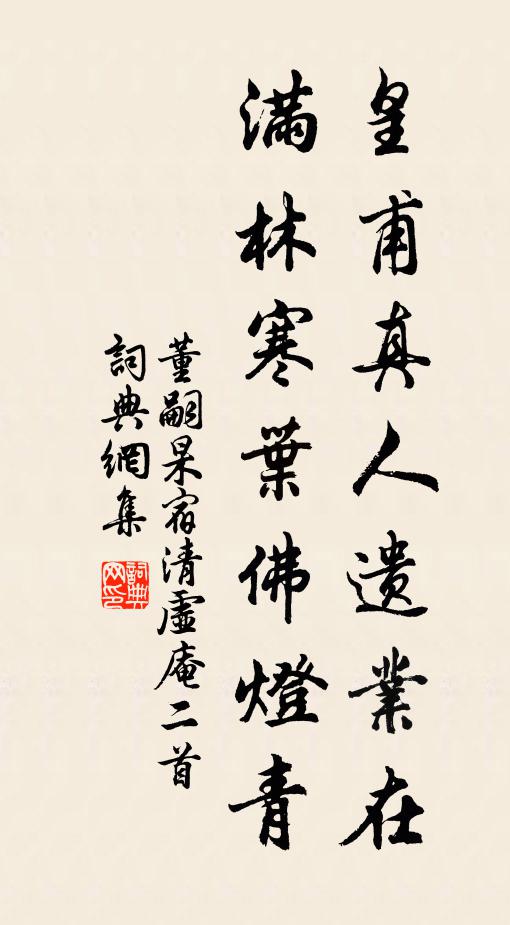 皇甫真人遗業在
滿林寒葉佛燈青
董嗣杲宿清虛庵二首
詞典網集
詞典网印